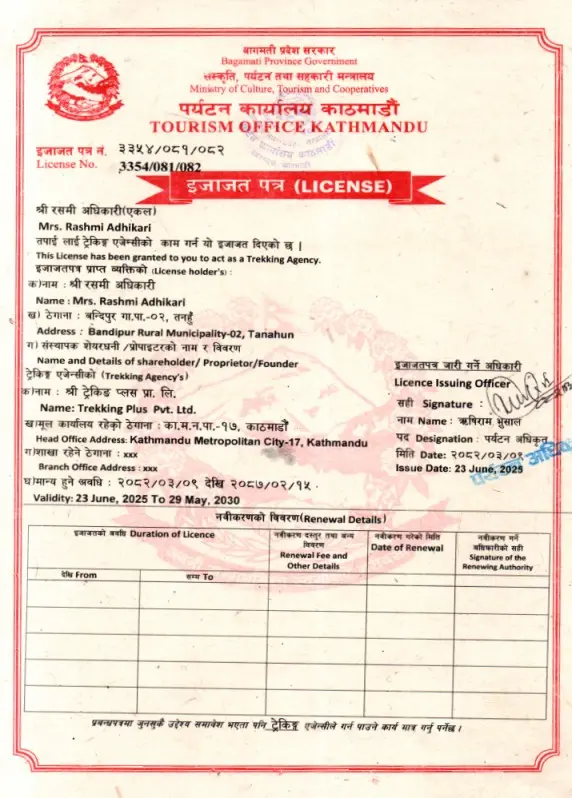 बागमती प्रदेश सरकार
Bagamati Province Government
संस्कृति, पर्यटन तथा सहकारी मन्त्रालय
Ministry of Culture, Tourism and Cooperatives
पर्यटन कार्यालय काठमाडौं
TOURISM OFFICE KATHMANDU
इजाजत पत्र नं. ३३५४/०८१/०८२
License No. 3354/081/082
इजाजत पत्र (LICENSE)
श्री रसमी अधिकारी(एकल)
Mrs. Rashmi Adhikari
तपाई लाई ट्रेकिङ्ग एजेन्सीको काम गर्न यो इजाजत दिएको छ |
This License has been granted to you to act as a Trekking Agency.
इजाजतपत्र प्राप्त व्यक्तिको (License holder's) :
क)नाम : श्री रसमी अधिकारी
Name : Mrs. Rashmi Adhikari
ख) ठेगाना : बन्दिपुर गा.पा.-०२, तनहुँ
Address : Bandipur Rural Municipality-02, Tanahun
ग) संस्थापक शेयरधनी /प्रोपाइटरको नाम र विवरण
Name and Details of shareholder/ Proprietor/Founder
ट्रेकिङ्ग एजेन्सीको (Trekking Agency's)
क)नाम: श्री ट्रेकिङ प्लस प्रा. लि.
Name: Trekking Plus Pvt. Ltd.
ख)मूल कार्यालय रहेको ठेगाना : का.म.न.पा.-१७, काठमाडौँ
Head Office Address: Kathmandu Metropolitan City-17, Kathmandu
ग)शाखा रहने ठेगाना : xxx
Branch Office Address : xxx
घ)मान्य हुने अवधि : २०८२/०३/०९ देखि २०८७/०२/१५
Validity: 23 June, 2025 To 29 May, 2030
इजाजतपत्र जारी गर्ने अधिकारी
Licence Issuing Officer
सही Signature :
नाम Name : ऋषिराम भुसाल
पद Designation : पर्यटन अधिकृत
मिति Date: २०८२/०३/०९
Issue Date: 23 June, 2025
नवीकरणको विवरण(Renewal Details)
इजाजतको अवधि Duration of Licence
नवीकरण दस्तुर तथा अन्य
विवरण
Renewal Fee and
Other Details
नवीकरण गरेको मिति
Date of Renewal
नवीकरण गर्ने
अधिकारीको सही
Signature of the
Renewing Authority
देखि From
सम्म To
प्रबन्धपत्रमा जुनसुकै उद्देश्य समावेश भएता पनि ट्रेकिङ्ग एजेन्सीले गर्न पाउने कार्य मात्र गर्नु पर्नेछ ।